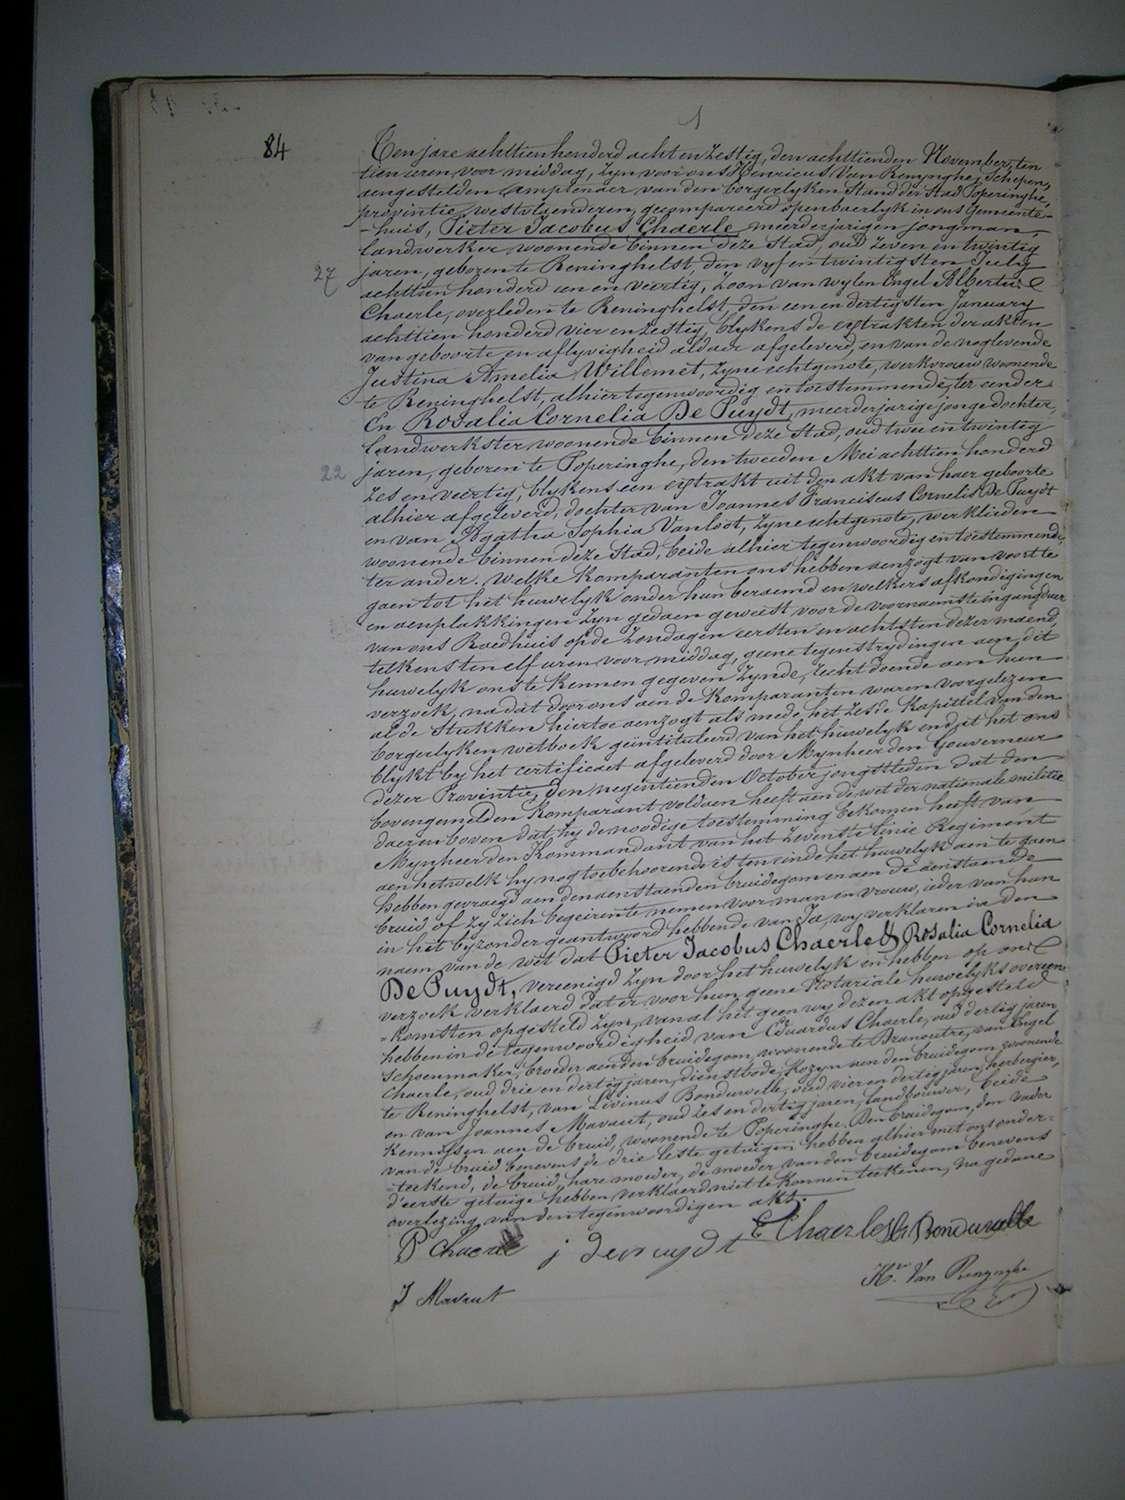 84
Ten jare achttienhonderd acht en zestig, den achttienden November, ten
tien uren voor middag, zyn voor ons Henricus Van Renynghe, Schepen,
aengestelden Amptenaer van den borgerlyken Stand der Stad Poperinghe,
provintie westvlaenderen, gecompareerd openbaerlyk in ons Gemeente-
-huis, Pieter Jacobus Chaerle, meerderjarigen jongman,
landwerker, woonende binnen deze Stad, oud zeven en twintig
27
jaren, geboren te Reninghelst, den vyf en twintigsten July
achttien honderd een en veertig, zoon van wylen Engel Albertus
Chaerle, overleden te Reninghelst, den een en dertigsten January
achttien honderd vier en zestig, blykens de extrakten der akten
van geboorte en aflyvigheid aldaer afgeleverd, en van de noglevende
Justina Amelia Willemet, zyne echtgenote, werkvrouw woonende
te Reninghelst, alhier tegenwoordig en toestemmende, ter eender
En Rosalia Cornelia De Puydt, meerderjarige jongedochter,
landwerkster, woonende binnen deze Stad, oud twee en twintig
22
jaren, geboren te Poperinghe, den tweeden Mei achttien honderd
zes en veertig, blykens een extrakt uit den akt van haer geboorte
alhier afgeleverd, dochter van Joannes Franciscus Cornelis De Puydt
en van Agatha Sophia Vanloot, zyne echtgenote, werklieden
woonende binnen deze Stad, beide alhier tegenwoordig en toestemmende,
ter ander. Welke Komparanten ons hebben aenzogt van voort te
gaen tot het huwelyk onder hun beraemd en welkers afkondigingen
en aenplakkingen zyn gedaen geweest voor de voornaemste ingangdeur
van ons Raedhuis op de zondagen eersten en achtsten dezer maend,
telkens ten elf uren voor middag, geene tegenstrydingen aen dit
huwelyk ons te kennen gegeven zynde, recht doende aen hun
verzoek, na dat door ons aen de Komparanten waren voorgelezen
al de stukken hiertoe aenzogt als mede het zesde Kapittel van den
borgerlyken wetboek geïntituleerd van het huwelyk en dit het ons
blykt by het certificaet afgeleverd door Mynheer den Gouverneur
dezer Provintie, den negentienden October jongstleden dat den
bovengemelden Komparant voldaen heeft aen de wet der nationale militie
daerenboven dat hy de noodige toestemming bekomen heeft van
Mynheer den Kommandant van het Zevenste linie Regiment
aen hetwelk hy nog toebehoorende is ten einde het huwelyk aen te gaen
hebben gevraegd aen den aenstaenden bruidegom en aen de aenstaende
bruid of zy zich begeiren te nemen voor man en vrouw, ieder van hun
in het byzonder geantwoord hebbende van Ja, wy verklaren in den
naem van de wet dat Pieter Jacobus Chaerle & Rosalia Cornelia
De Puydt, vereenigd zyn door het huwelyk en hebben op ons
verzoek verklaerd dat er voor hun geene Notariale huwelyks overeen-
-komsten opgesteld zyn, van al het geen wy dezen akt opgesteld
hebben in de tegenwoordigheid van Eduardus Chaerle, oud dertig jaren,
schoenmaker, broeder aen den bruidegom, woonende te Dranoutre, van Engel
Chaerle, oud drie en dertig jaren, dienstbode, Kozyn aen den bruidegom woonende
te Reninghelst, van Livinus Bonduwelle, oud vier en dertig jaren, herbergier,
en van Joannes Mavaut, oud zes en dertig jaren, landbouwer, beide
kennissen aen de bruid, woonende te Poperinghe. Den bruidegom, den vader
van de bruid benevens de drie leste getuigen hebben alhier met ons onder-
-teekend, de bruid, hare moeder, de moeder van den bruidegom benevens
d'eerste getuige hebben verklaerd niet te konnen teekenen, na gedane
overlezing van den tegenwoordigen akt.
P Chaerle j depuydt E Chaerle Lr Bonduwelle
J Mavaut
Hri Van Renynghe